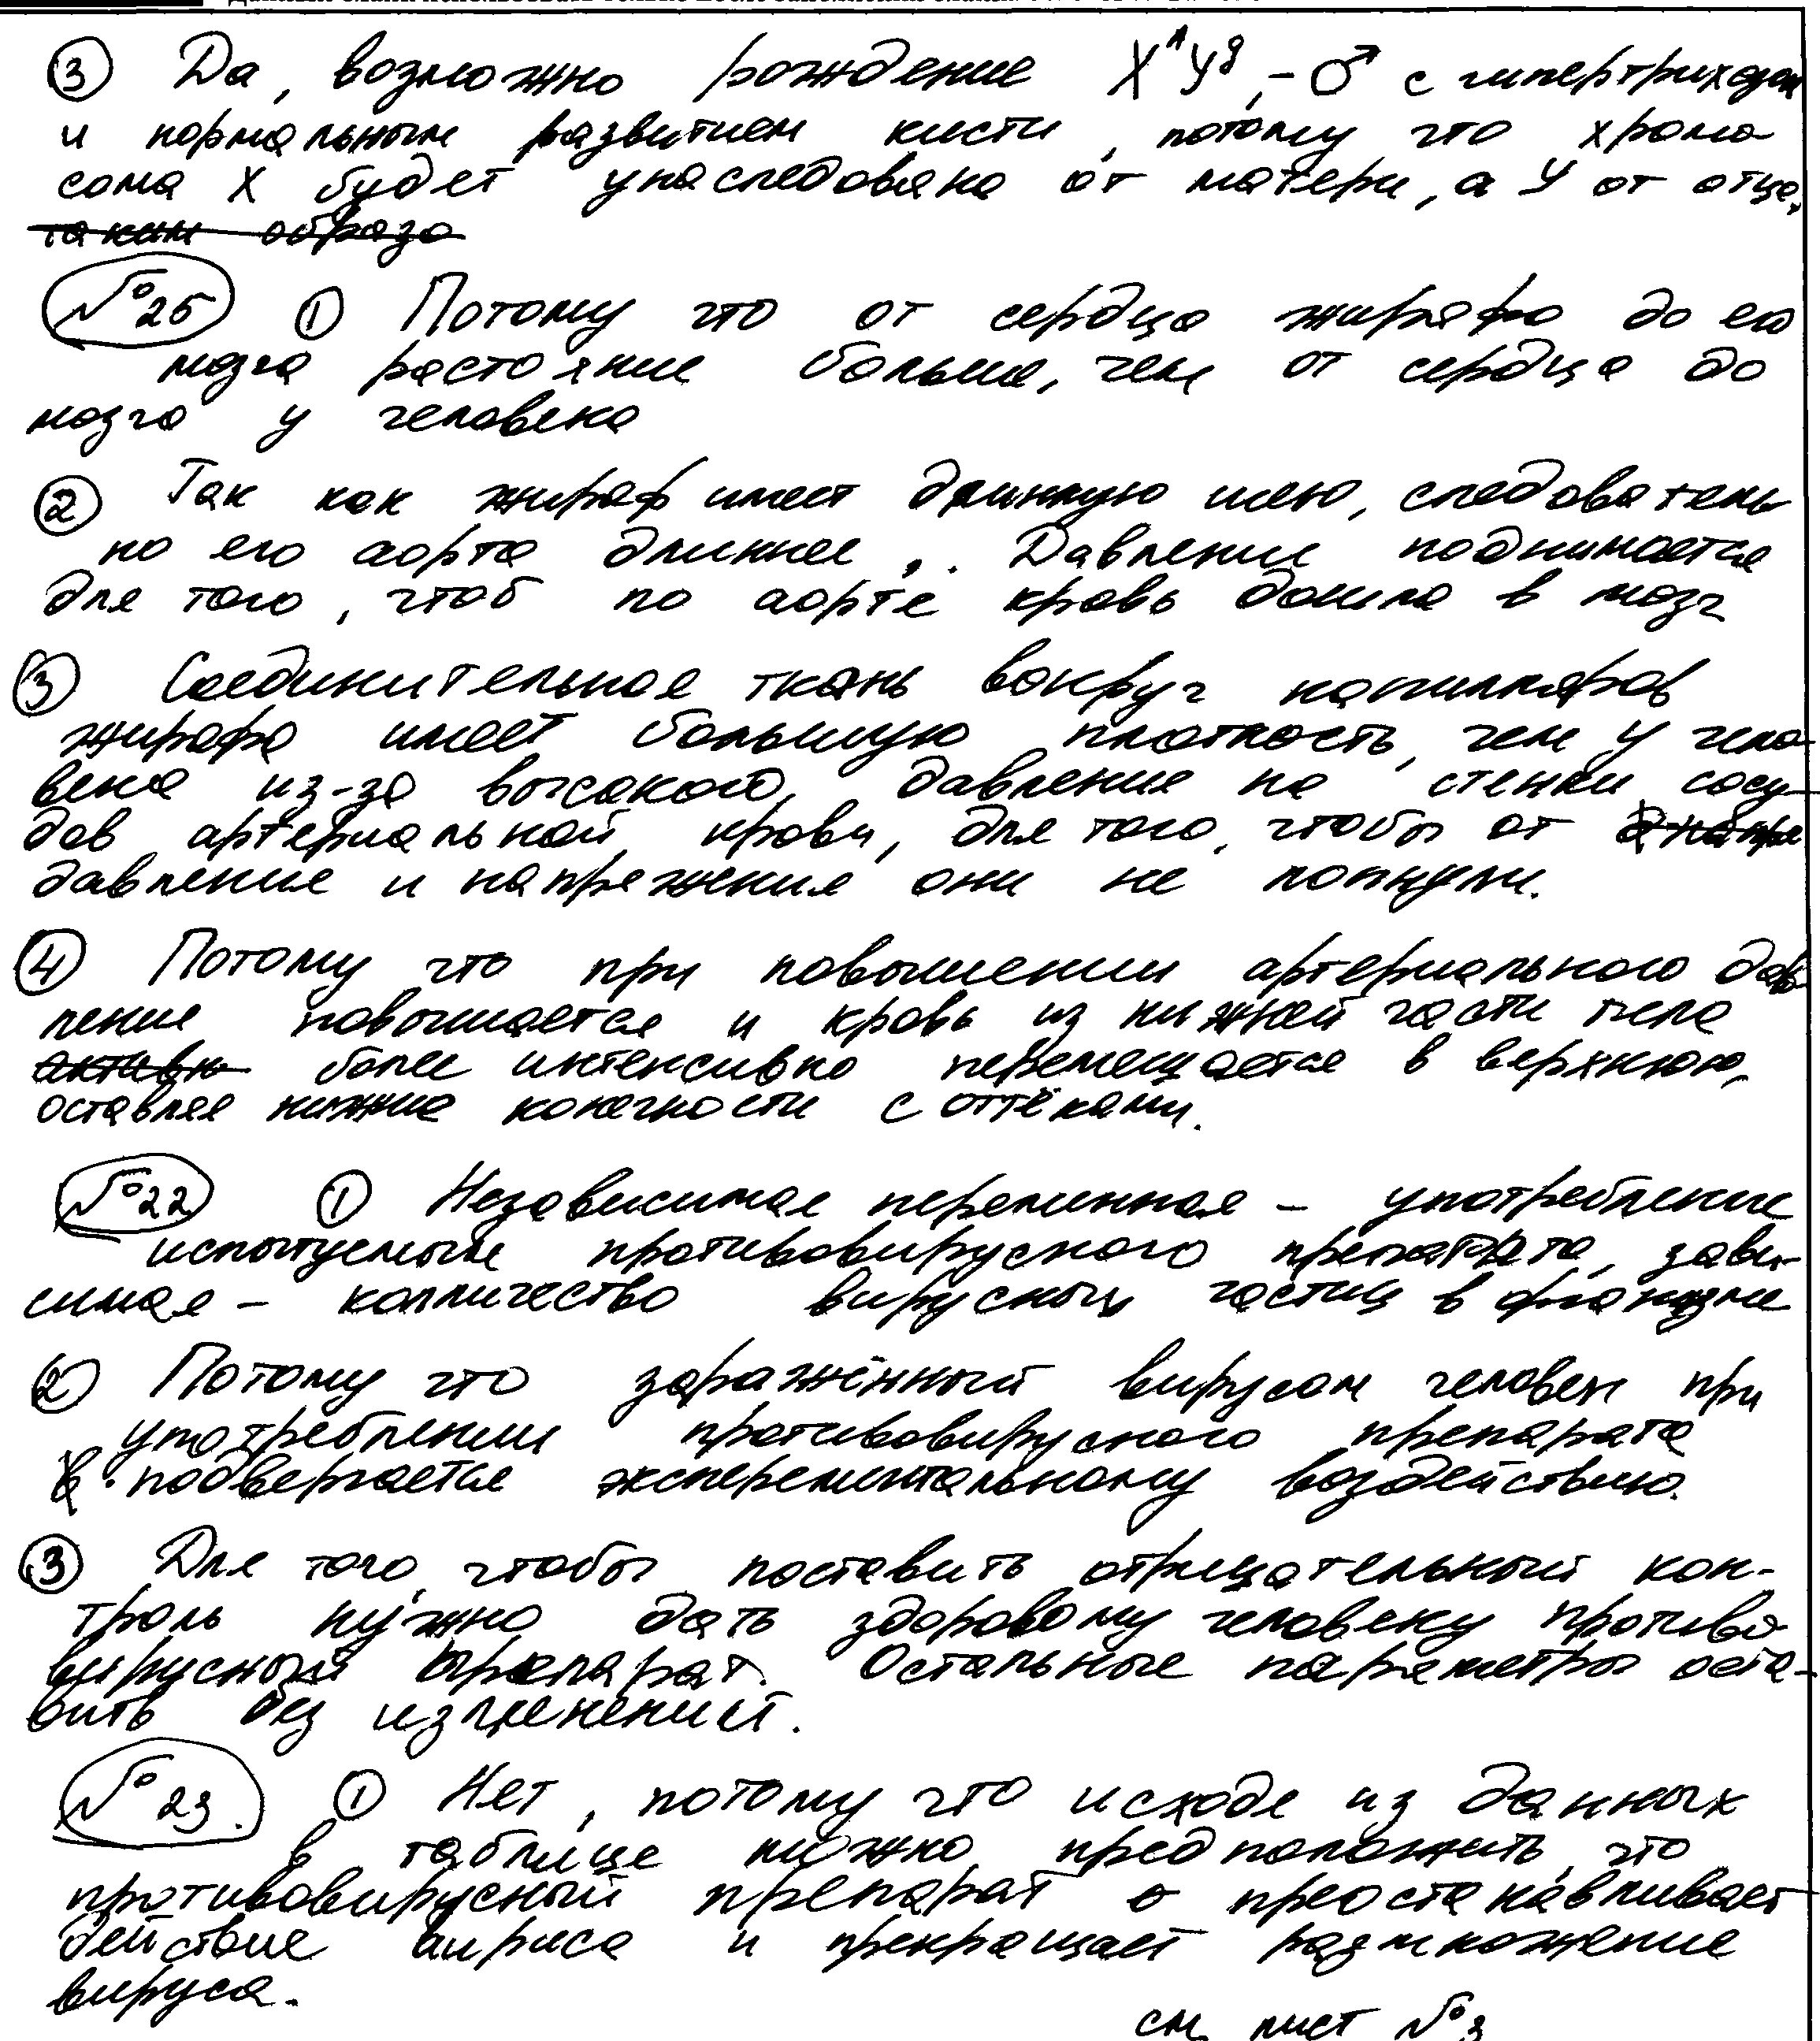 ③ Да, возможно рождение XᴬYᵍ, - ♂ с гипертрихозом
и нормальным развитием кисти, потому что хромо
сома X будет унаследована от матери, а У от отца,
таким образо
№25 ① Потому что от сердца жирафа до его
мозга растояние больше, чем от сердца до
мозга у человека
② Так как жираф имеет длинную шею, следователь
но его аорта длиннее,. Давление поднимается
для того, чтоб по аорте кровь дошла в мозг
③ Соединительная ткань вокруг капилляров
жирафа имеет большую плотность, чем у чело-
века из-за высокого давления на стенки сосу-
дов артериальной крови, для того, чтобы от
давления и напряжения они не лопнули.
④ Потому что при повышении артериального дав
ления повышается и кровь из нижней части тела
активн более интенсивно перемещается в верхнюю,
оставляя нижние конечности с оттёками.
№22 ① Независимая переминная - употребление
испытуемым противовирусного препарата, зави-
симая - колличество вирусных частиц в организме
② Потому что заражённый вирусом человек при
употреблении противовирусного препарата
подвергается эксперементальному воздействию.
③ Для того, чтобы поставить отрицательный кон-
троль нужно дать здоровому человеку противо
вирусный препарат. Остальные параметры оста-
вить без изменений.
№23. ① Нет, потому что исходя из данных
в таблице можно предположить, что
противовирусный препарат преостанавливает
действие вируса и прекращает размножение
вируса.
см лист №3